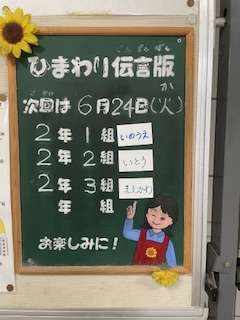 でん ごん ばん
ひまわり伝言版
じ かい か
次回は 6月24日(火)
2年 1組 いのうえ
2年 2組 いとう
2年 3組
年 組
お楽しみに!